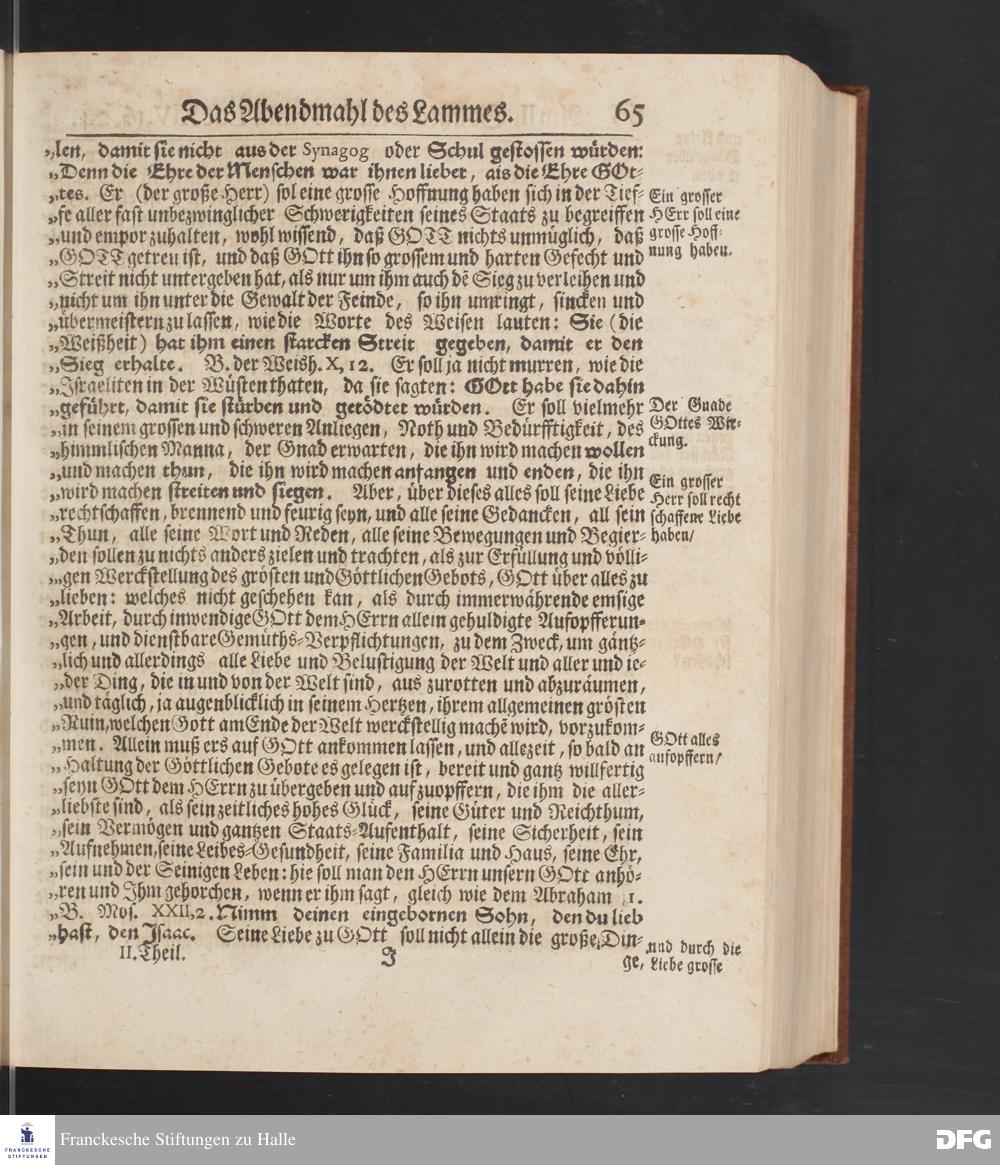 Das Abendmahl des Lammes. 65
„len, damit sie nicht aus der Synagog oder Schul gestossen würden:
„Denn die Ehre der Menschen war ihnen lieber, als die Ehre GOt-
„tes. Er (der große Herr) sol eine grosse Hoffnung haben sich in der Tief-
„fe aller fast unbezwinglicher Schwerigkeiten seines Staats zu begreiffen
„und empor zuhalten, wohl wissend, daß GOTT nichts unmüglich, daß
„GOTT getreu ist, und daß GOtt ihn so grossem und harten Gefecht und
„Streit nicht untergeben hat, als nur um ihm auch dē Sieg zu verleihen und
„nicht um ihn unter die Gewalt der Feinde, so ihn umringt, sincken und
„übermeistern zu lassen, wie die Worte des Weisen lauten: Sie (die
„Weißheit) hat ihm einen starcken Streit gegeben, damit er den
„Sieg erhalte. B. der Weish. X, 12. Er soll ja nicht murren, wie die
„Israeliten in der Wüsten thaten, da sie sagten: GOtt habe sie dahin
„geführt, damit sie stürben und getödtet würden. Er soll vielmehr
„in seinem grossen und schweren Anliegen, Noth und Bedürfftigkeit, des
„himmlischen Manna, der Gnad erwarten, die ihn wird machen wollen
„und machen thun, die ihn wird machen anfangen und enden, die ihn
„wird machen streiten und siegen. Aber, über dieses alles soll seine Liebe
„rechtschaffen, brennend und feurig seyn, und alle seine Gedancken, all sein
„Thun, alle seine Wort und Reden, alle seine Bewegungen und Begier-
„den sollen zu nichts anders zielen und trachten, als zur Erfüllung und völli-
„gen Werckstellung des grösten und Göttlichen Gebots, GOtt über alles zu
„lieben: welches nicht geschehen kan, als durch immerwährende emsige
„Arbeit, durch inwendige GOtt dem HErrn allein gehuldigte Aufopfferun-
„gen, und dienstbare Gemüths-Verpflichtungen, zu dem Zweck, um gäntz-
„lich und allerdings alle Liebe und Belustigung der Welt und aller und ie-
„der Ding, die in und von der Welt sind, aus zurotten und abzuräumen,
„und täglich, ja augenblicklich in seinem Hertzen, ihrem allgemeinen grösten
„Ruin, welchen Gott am Ende der Welt werckstellig machē wird, vorzukom-
„men. Allein muß ers auf GOtt ankommen lassen, und allezeit, so bald an
„Haltung der Göttlichen Gebote es gelegen ist, bereit und gantz willfertig
„seyn GOtt dem HErrn zu übergeben und aufzuopffern, die ihm die aller-
„liebste sind, als sein zeitliches hohes Glück, seine Güter und Reichthum,
„sein Vermögen und gantzen Staats-Aufenthalt, seine Sicherheit, sein
„Aufnehmen, seine Leibes-Gesundheit, seine Familia und Haus, seine Ehr,
„sein und der Seinigen Leben: hie soll man den HErrn unsern GOtt anhö-
„ren und Ihm gehorchen, wenn er ihm sagt, gleich wie dem Abraham 1.
„B. Mos. XXII,2. Nimm deinen eingebornen Sohn, den du lieb
„hast, den Isaac. Seine Liebe zu GOtt soll nicht allein die große Din-
II. Theil. J ge,
Ein grosser
HErr soll eine
grosse Hoff-
nung haben.
Der Gnade
GOttes Wir-
ckung.
Ein grosser
Herr soll recht
schaffene Liebe
haben/
GOtt alles
aufopffern/
und durch die
Liebe grosse
FRANCKESCHE
STIFTUNGEN
Franckesche Stiftungen zu Halle
DFG